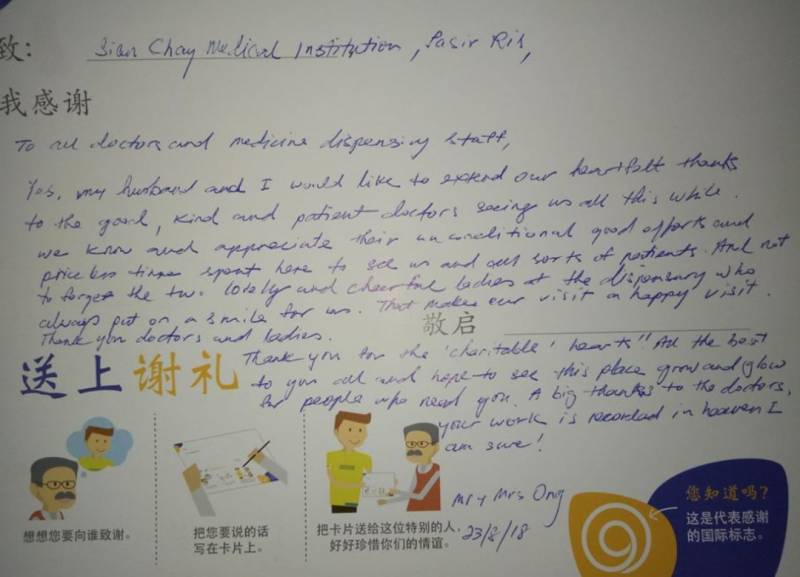 致: Sian Chay Medical Institution, Pasir Ris,
我感谢
To all doctors and medicine dispensing staff,
Yes, my husband and I would like to extend our heartfelt thanks
to the good, kind and patient doctors seeing us all this while.
We know and appreciate their unconditional good efforts and
priceless times spent here to see us and all sorts of patients. And not
to forget the two lovely and cheerful ladies at the dispensary who
always put on a smile for us. That makes our visit a happy visit.
Thank you doctors and ladies.
敬启
Thank you for the 'charitable' hearts" All the best
to you all and hope to see this place grow and glow
for people who need you. A big thanks to the doctors,
your work is recorded in heaven I
am sure!
Mr y Mrs Ong
23/8/18
送上谢礼
想想您要向谁致谢。
把您要说的话
写在卡片上。
把卡片送给这位特别的人,
好好珍惜你们的情谊。
您知道吗?
这是代表感谢
的国际标志。